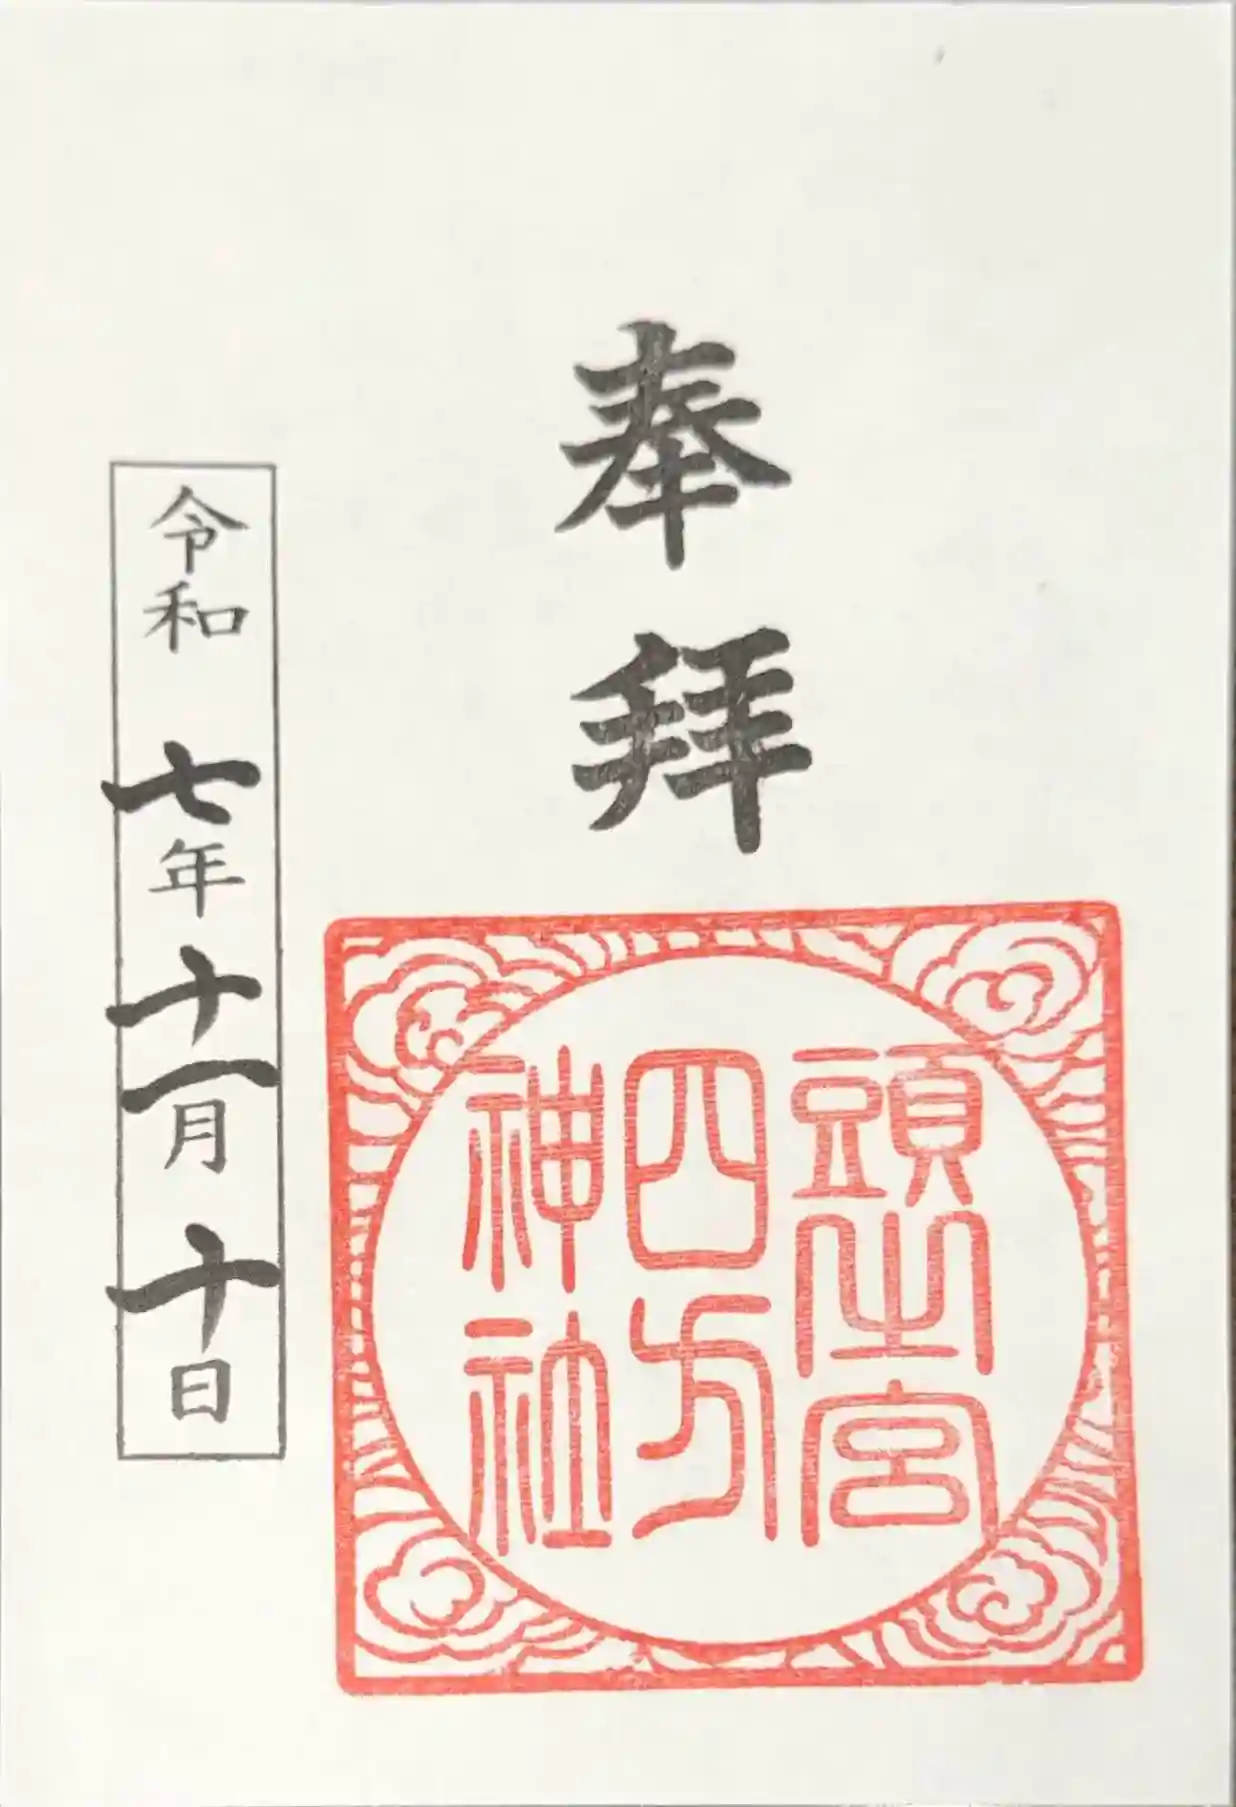 奉拜
頭之宮
四方
神社
令和七年十一月十日